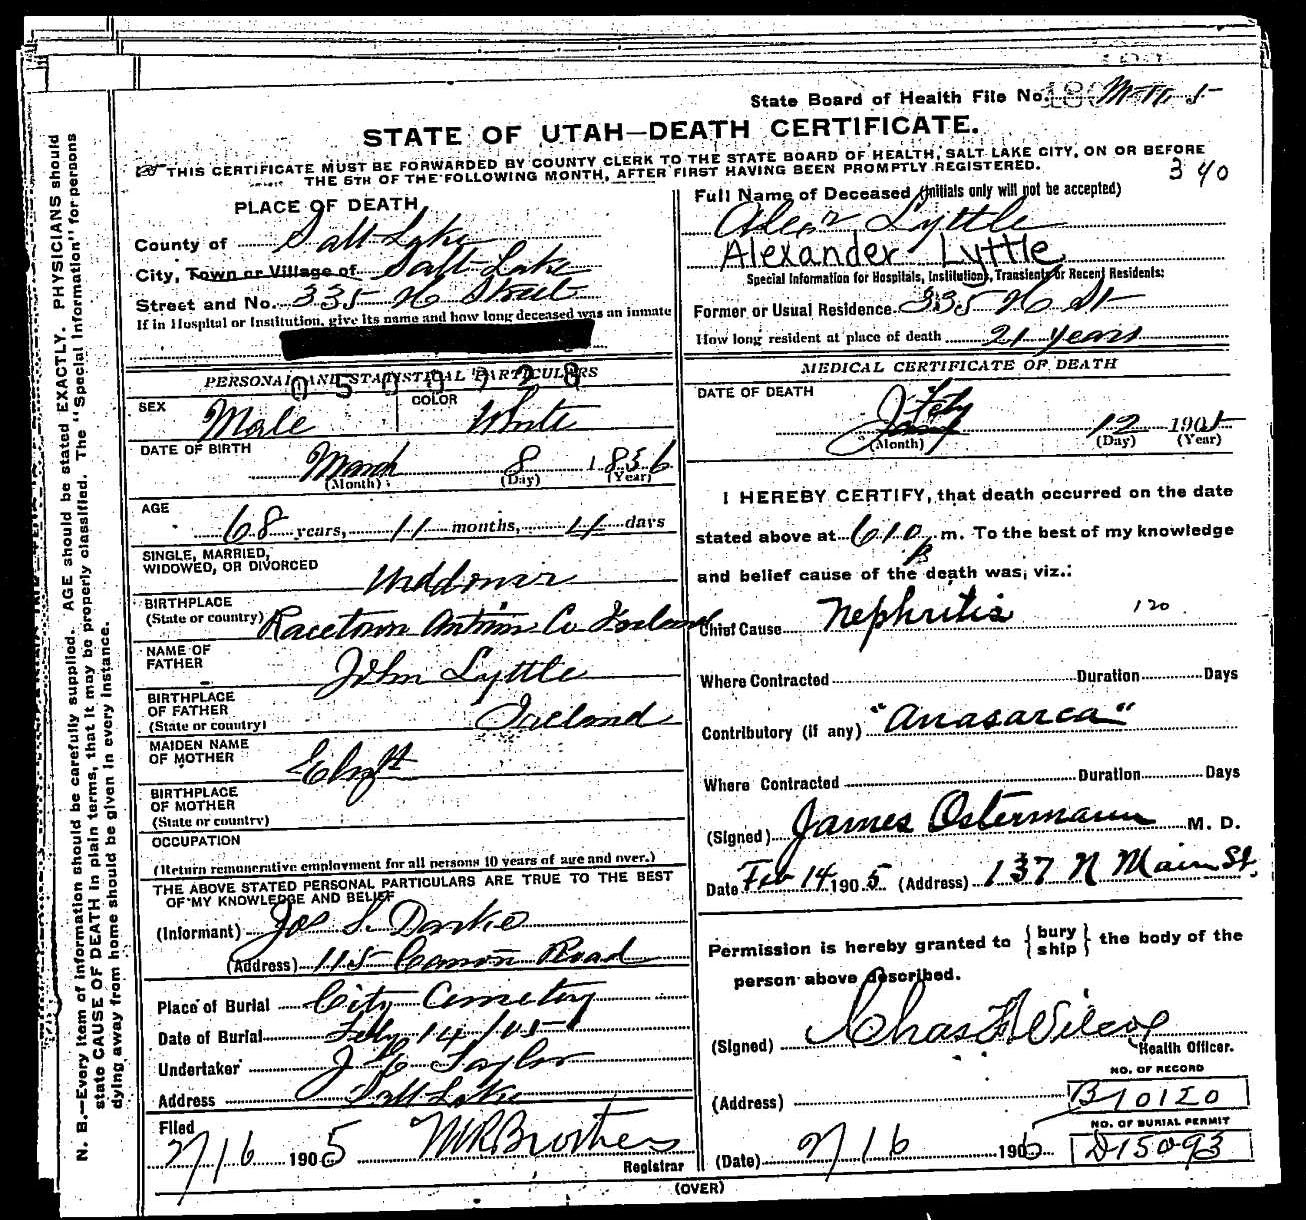 State Board of Health File No.
STATE OF UTAH—DEATH CERTIFICATE.
THIS CERTIFICATE MUST BE FORWARDED BY COUNTY CLERK TO THE STATE BOARD OF HEALTH, SALT LAKE CITY, ON OR BEFORE
THE 5TH OF THE FOLLOWING MONTH, AFTER FIRST HAVING BEEN PROMPTLY REGISTERED.
340
N. B.—Every item of information should be carefully supplied. AGE should be stated EXACTLY. PHYSICIANS should
state CAUSE OF DEATH in plain terms, that it may be properly classified. The "Special Information" for persons
dying away from home should be given in every instance.
PLACE OF DEATH
County of Salt Lake
City, Town or Village of Salt Lake
Street and No. 335 N Street
If in Hospital or Institution, give its name and how long deceased was an inmate
PERSONAL AND STATISTICAL PARTICULARS
SEX Male COLOR White
DATE OF BIRTH March 8 1836
(Month) (Day) (Year)
AGE 68 years, 11 months, 4 days
SINGLE, MARRIED,
WIDOWED, OR DIVORCED Widower
BIRTHPLACE
(State or country) Racetown Antrim Co Ireland
NAME OF
FATHER John Lyttle
BIRTHPLACE
OF FATHER
(State or country) Ireland
MAIDEN NAME
OF MOTHER Elizbt
BIRTHPLACE
OF MOTHER
(State or country)
OCCUPATION
(Return remunerative employment for all persons 10 years of age and over.)
THE ABOVE STATED PERSONAL PARTICULARS ARE TRUE TO THE BEST
OF MY KNOWLEDGE AND BELIEF
(Informant) Jos S. Darke
(Address) 115 Canon Road
Place of Burial City Cemetery
Date of Burial Feby 14/05
Undertaker Taylor
Address Salt Lake
Filed
2/16 1905 Brothers
Registrar
Full Name of Deceased (Initials only will not be accepted)
Alexr Lyttle
Alexander Lyttle
Special Information for Hospitals, Institutions, Transients or Recent Residents:
Former or Usual Residence 335 N St
How long resident at place of death 21 years
MEDICAL CERTIFICATE OF DEATH
DATE OF DEATH
Feby 12 1905
(Month) (Day) (Year)
I HEREBY CERTIFY, that death occurred on the date
stated above at 610 P m. To the best of my knowledge
and belief cause of the death was, viz.:
Chief Cause Nephritis 120
Where Contracted Duration Days
Contributory (if any) "Anasarca"
Where Contracted Duration Days
(Signed) James Ostermann M. D.
Date Feb 14 1905 (Address) 137 N Main St.
Permission is hereby granted to { bury ship } the body of the
person above described.
(Signed) Chas F Wilcox
Health Officer.
NO. OF RECORD
(Address) B10120
NO. OF BURIAL PERMIT
(Date) 2/16 1905 D15093
(OVER)